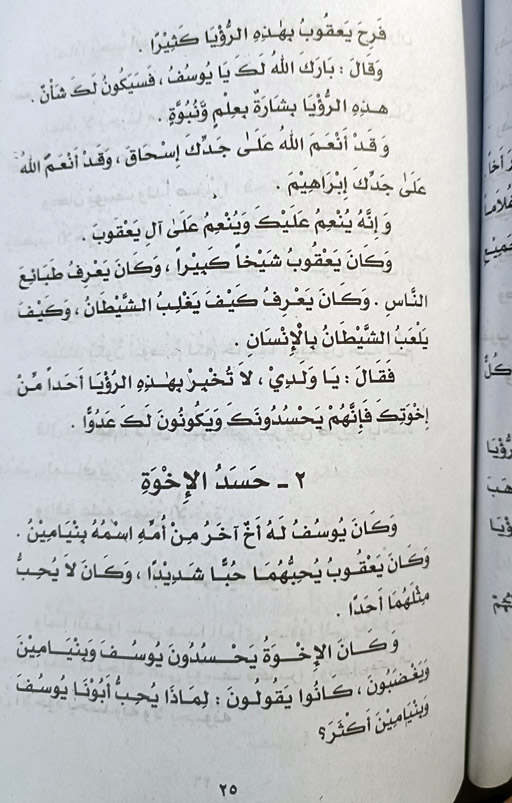 فَرِحَ يَعقُوبُ بِهٰذِهِ الرُّؤْيَا كَثِيْرًا .
وَقَالَ : بَارَكَ اللهُ لَكَ يَا يُوسُفُ ، فَسَيَكُونُ لَكَ شَأْنٌ .
هذِهِ الرُّؤْيَا بِشَارَةٌ بِعِلْمٍ وَّنُبُوَّةٍ .
وَ قَدْ أَنْعَمَ اللهُ عَلَىٰ جَدِّكَ إِسْحَاقَ ، وَقَدْ أَنْعَمَ اللهُ
عَلَىٰ جَدِّكَ إِبْرَاهِيْمَ .
وَ إِنَّهُ يُنْعِمُ عَلَيْكَ وَيُنْعِمُ عَلَىٰ آلِ يَعْقُوبَ .
وَكَانَ يَعْقُوبُ شَيْخاً كَبِيْراً ، وَكَانَ يَعْرِفُ طَبَائِعَ
النَّاسِ . وَكَانَ يَعْرِفُ كَيْفَ يَغْلِبُ الشَّيْطَانُ ، وَكَيْفَ
يَلْعَبُ الشَّيْطَانُ بِالْإِنْسَانِ .
فَقَالَ : يَا وَلَدِيْ ، لَا تُخْبِرْ بِهٰذِهِ الرُّؤْيَا أَحَداً مِّنْ
إِخْوَتِكَ فَإِنَّهُمْ يَحْسُدُونَكَ وَيَكُونُونَ لَكَ عَدُوًّا .
٢ - حَسَدُ الإِخْوَةِ
وَكَانَ يُوسُفُ لَهُ أَخٌ آخَرُ مِنْ أُمِّهِ اسْمُهُ بِنْيَامِيْنُ .
وَكَانَ يَعْقُوبُ يُحِبُّهُمَا حُبًّا شَدِيْدًا ، وَكَانَ لَا يُحِبُّ
مِثْلَهُمَا أَحَدًا .
وَ كَانَ الإِخْوَةُ يَحْسُدُونَ يُوسُفَ وَبِنْيَامِيْنَ
وَيَغْضَبُونَ ، كَانُوا يَقُولُونَ : لِمَاذَا يُحِبُّ أَبُوْنَا يُوسُفَ
وَبِنْيَامِيْنَ أَكْثَرَ؟
٢٥